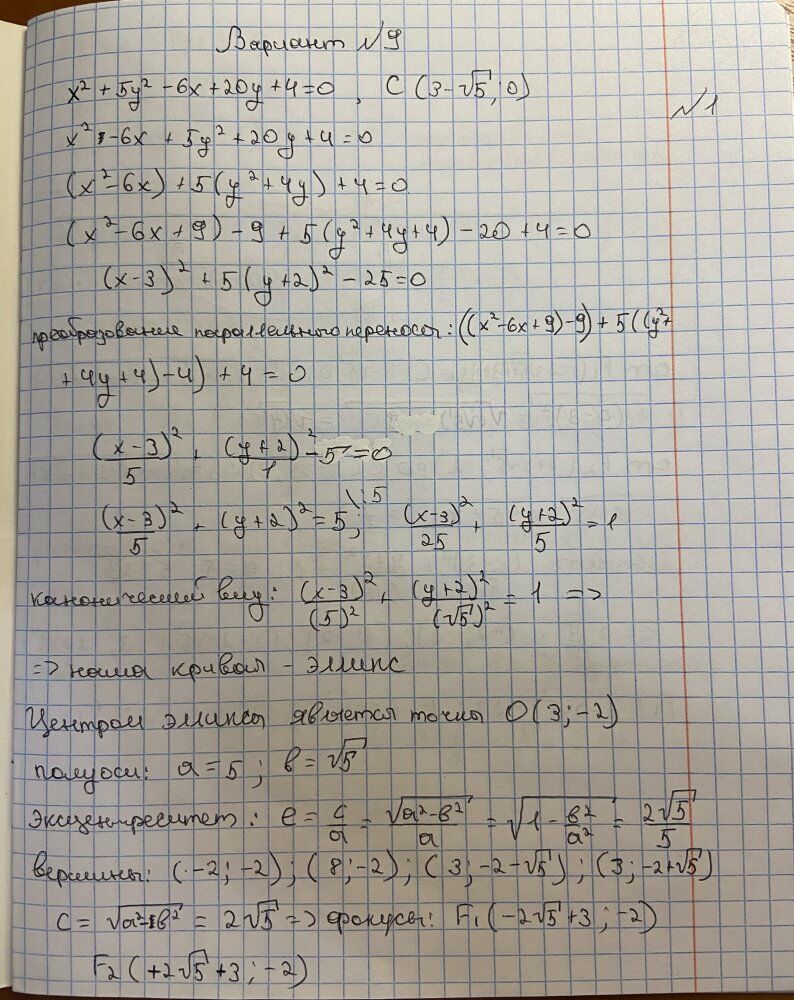 Вариант №9
x² + 5y² - 6x + 20y + 4 = 0 , C (3-√5; 0)
№1
x² - 6x + 5y² + 20y + 4 = 0
(x² - 6x) + 5(y² + 4y) + 4 = 0
(x² - 6x + 9) - 9 + 5(y² + 4y + 4) - 20 + 4 = 0
(x-3)² + 5(y+2)² - 25 = 0
преобразование параллельного переноса: ((x² - 6x + 9) - 9) + 5((y² +
+ 4y + 4) - 4) + 4 = 0
(x-3)²/5 + (y+2)²/1 - 5 = 0
(x-3)²/5 + (y+2)² = 5 ; \:5 (x-3)²/25 + (y+2)²/5 = 1
канонический вид: (x-3)²/(5)² + (y+2)²/(√5)² = 1 =>
=> наша кривая - элипс
Центром элипсы является точка O(3; -2)
полуоси: a = 5 ; b = √5
эксцентреситет: e = c/a = √(a²-b²)/a = √(1 - b²/a²) = 2√5/5
вершины: (-2; -2) ; (8; -2) ; (3; -2-√5) ; (3; -2+√5)
C = √(a²-b²) = 2√5 => фокусы: F₁(-2√5+3; -2)
F₂(+2√5+3; -2)